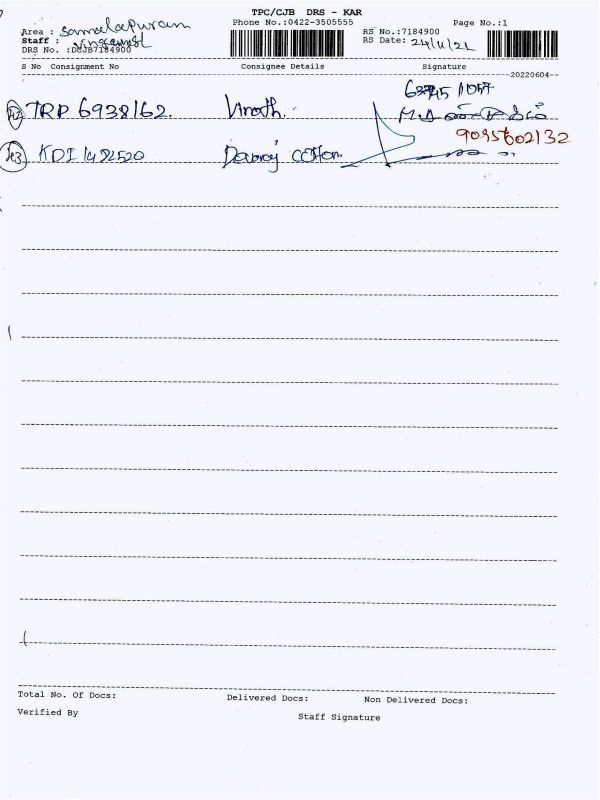 TPC/CJB DRS - KAR
Phone No.:0422-3505555 Page No.:1
Area : Samalapuram
Staff :
DRS No. :DCJB7184900
RS No.:7184900
RS Date: 24/11/22
S No Consignment No Consignee Details Signature
20220604
TRP 6938162. Vinoth.
KDI 1492520 cotton.
9095602132
Total No. Of Docs: Delivered Docs: Non Delivered Docs:
Verified By Staff Signature